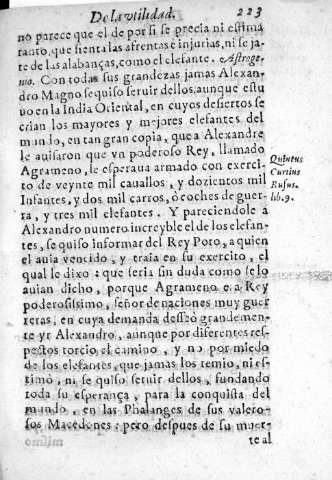 De la vtilidad. 223
no parece que el de por si se precia ni estima
tanto, que sienta las afrentas è injurias, ni se ja-
te de las alabanças, como el elefante. Astroge-
mo. Con todas sus grandezas jamas Alexan-
dro Magno se quiso seruir dellos, aunque estu
uo en la India Oriental, en cuyos desiertos se
crian los mayores y mejores elefantes del
mundo, en tan gran copia, que a Alexandre
le auisaron que vn poderoso Rey, llamado
Agrameno, le esperaua armado con exerci-
to de veynte mil cauallos, y dozientos mil
Infantes, y dos mil carros, ò coches de guer-
ra, y tres mil elefantes. Y pareciendole a
Alexandro numero increyble el de los elefan-
tes, se quiso informar del Rey Poro, a quien
el auia vencido, y traia en su exercito, el
qual le dixo: que seria sin duda como se lo
auian dicho, porque Agrameno era Rey
poderosissimo, señor de naciones muy guer
reras, en cuya demanda desseò grandemen-
te yr Alexandro, aunque por diferentes res-
pectos torcio el camino, y no por miedo
de los elefantes, que jamas los temio, ni es-
timò, ni se quiso seruir dellos, fundando
toda su esperança, para la conquista del
mundo, en las Phalanges de sus valero-
sos Macedones: pero despues de su muer-
te al
Quintus
Curtius
Rufus.
lib. 9.